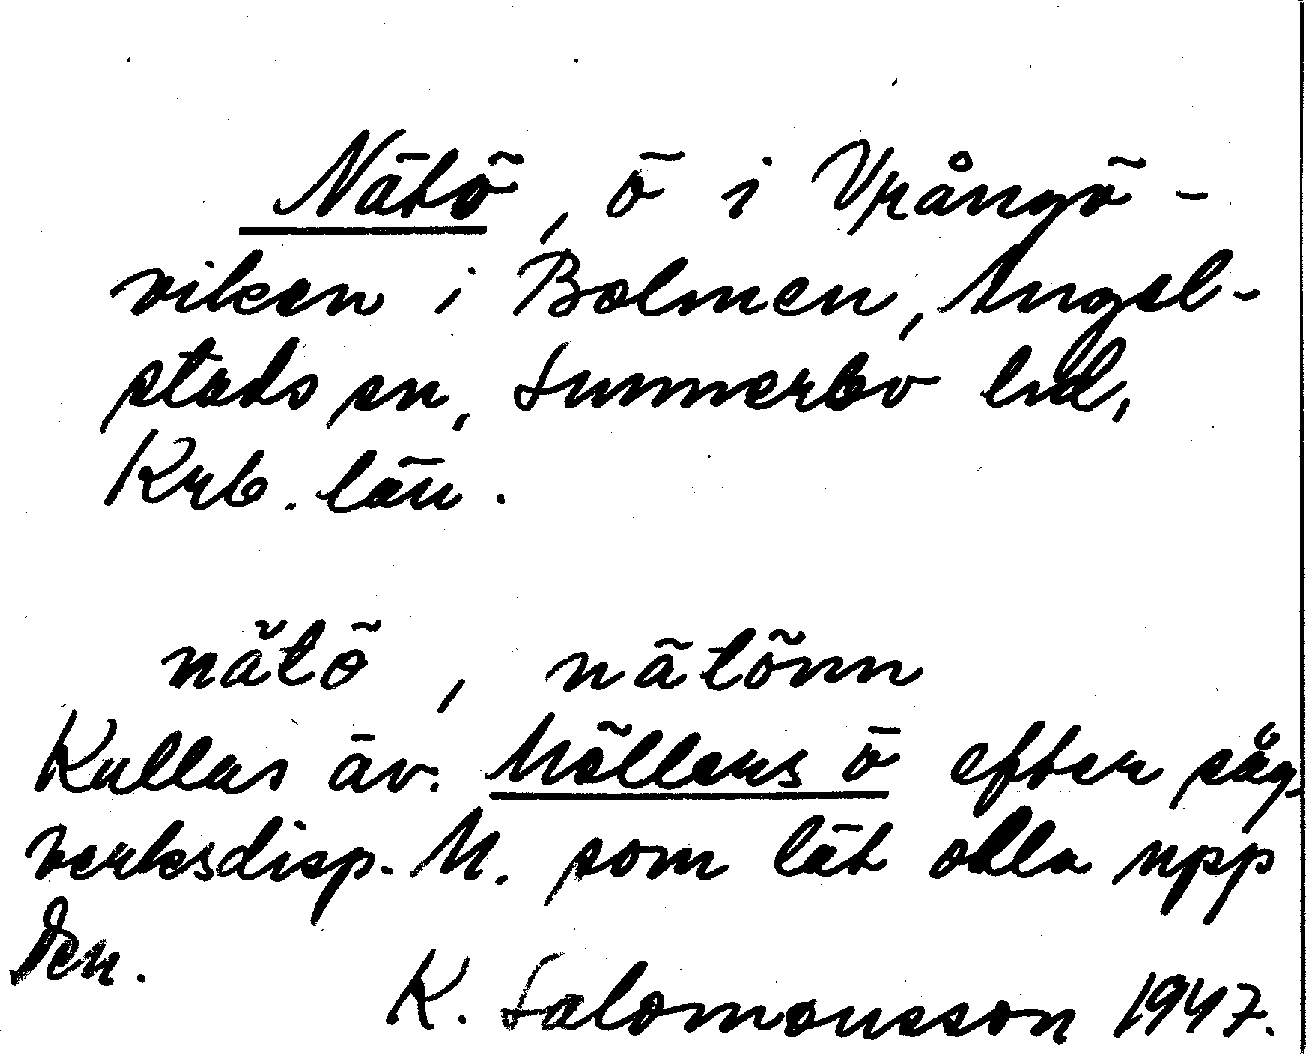 Nätö, ö i Vrångö-
viken i Bolmen, Angel-
stads sn, Sunnerbo hd,
Krb. län.
nätö, nätönn
Kallas äv. Möllers ö efter såg-
verksdisp. M. som lät odla upp
den.
K. Salomonsson 1947.